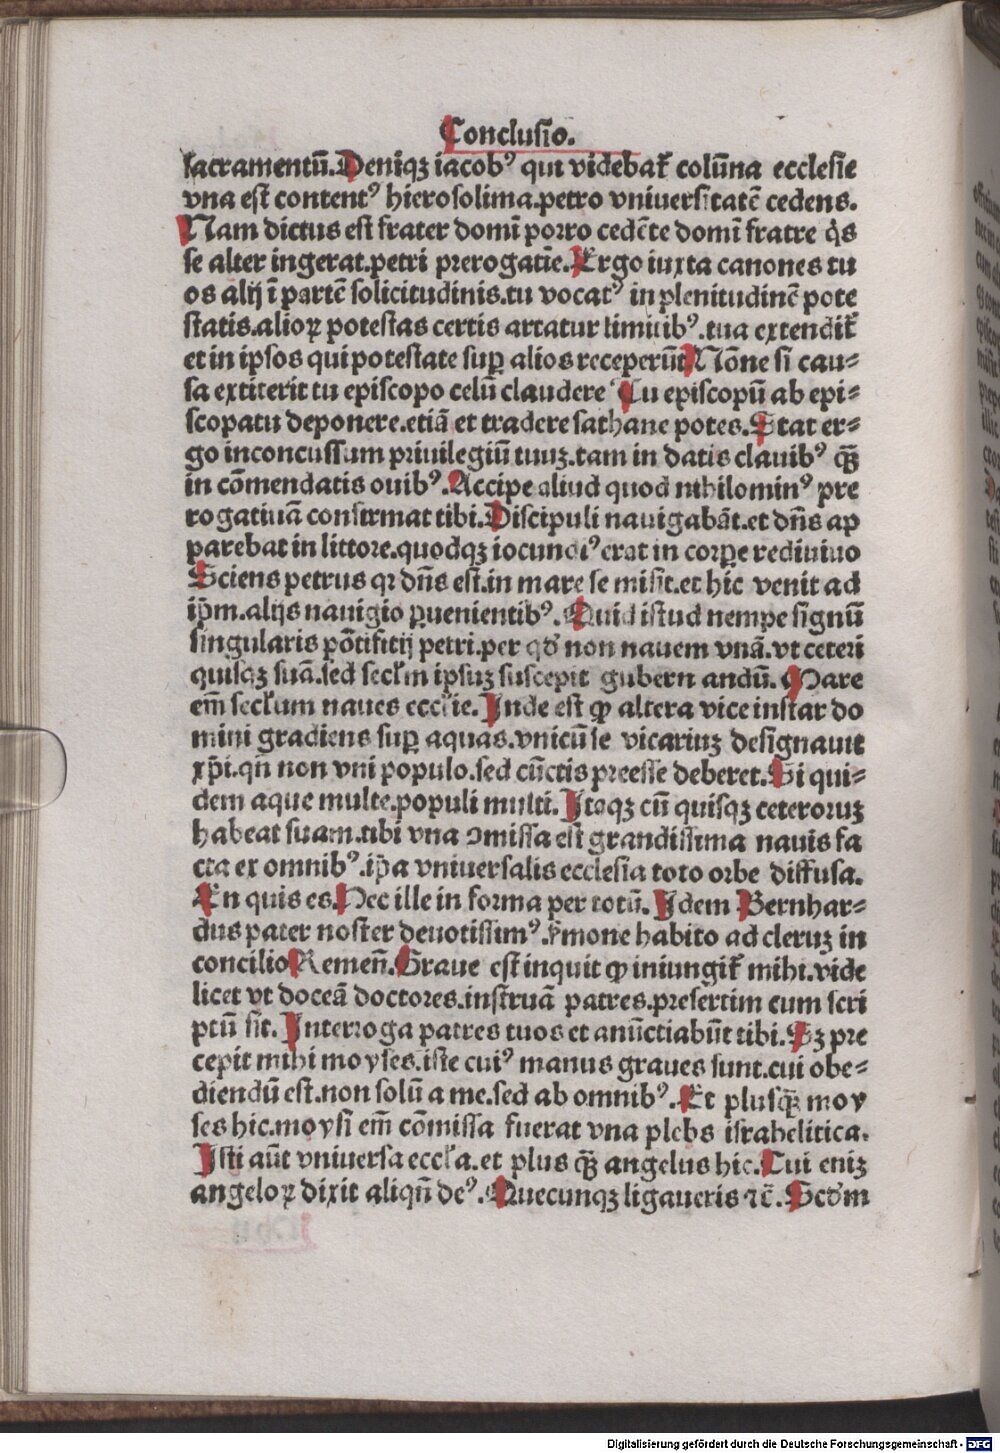 Conclusio.
sacramentū. Deniqꝫ iacobꝰ qui videbat᷑ colūna ecclesie
vna est contentꝰ hierosolima. petro vniuersitatē cedens.
Nam dictus est frater domī porro cedēte domī fratre q̇s
se alter ingerat. petri prerogatīe. Ergo iuxta canones tu
os alij ī partē solicitudinis. tu vocatꝰ in plenitudinē pote
statis. alioꝝ potestas certis artatur limitibꝰ. tua extendit᷑
et in ipsos qui potestate suꝑ alios receperūt Nōne si cau⸗
sa extiterit tu episcopo celū claudere Tu episcopū ab epi⸗
scopatu deponere. etiā et tradere sathane potes. Stat er⸗
go inconcussum priuilegiū tuuꝫ. tam in datis clauibꝰ qꝫ̄
in cōmendatis ouibꝰ. Accipe aliud quod nihilominꝰ pre
rogatiuā confirmat tibi. Discipuli nauigabāt. et dn̄s ap
parebat in littore. quodqꝫ iocundiꝰ erat in corꝑe rediuiuo
Sciens petrus qꝛ dn̄s est. in mare se misit. et hic venit ad
ip̄m. alijs nauigio ꝑuenientibꝰ. Quid istud nempe signū
singularis pōtificij petri. per qď non nauem vnā. vt ceteri
quisqꝫ suā. sed secl̄m ipsuꝫ suscepit gubernandū. Mare
em̄ secl̄um naues eccl̄ie. Inde est ꝙ altera vice instar do
mini gradiens suꝑ aquas. vnicū se vicariuꝫ designauit
xp̄i. qn̄ non vni populo. sed cūctis preesse deberet. Si qui⸗
dem aque multe. populi multi. Itaqꝫ cū quisqꝫ ceteroruꝫ
habeat suam. tibi vna ꝯmissa est grandissima nauis fa
cta ex omnibꝰ. ip̄a vniuersalis ecclesia toto orbe diffusa.
En quis es. Nec ille in forma per totū. Idem Bernhar⸗
dus pater noster deuotissimꝰ. ẜmone habito ad cleruꝫ in
concilio Remen̄. Graue est inquit ꝙ iniungit᷑ mihi. vide
licet vt doceā doctores. instruā patres. presertim cum scri
ptū sit. Interroga patres tuos et anūctiabūt tibi. Sꝫ pre
cepit mihi moyses. iste cuiꝰ manus graues sunt. cui obe⸗
diendū est. non solū a me. sed ab omnibꝰ. Et plusqꝫ̄ moy
ses hic. moysi em̄ cōmissa fuerat vna plebs israhelitica.
Isti aūt vniuersa eccl̄a. et plus qꝫ̄ angelus hic. Cui eniꝫ
angeloꝝ dixit aliqn̄ deꝰ. Quecunqꝫ ligaueris ⁊c̄. Scďm
Digitalisierung gefördert durch die Deutsche Forschungsgemeinschaft - DFG